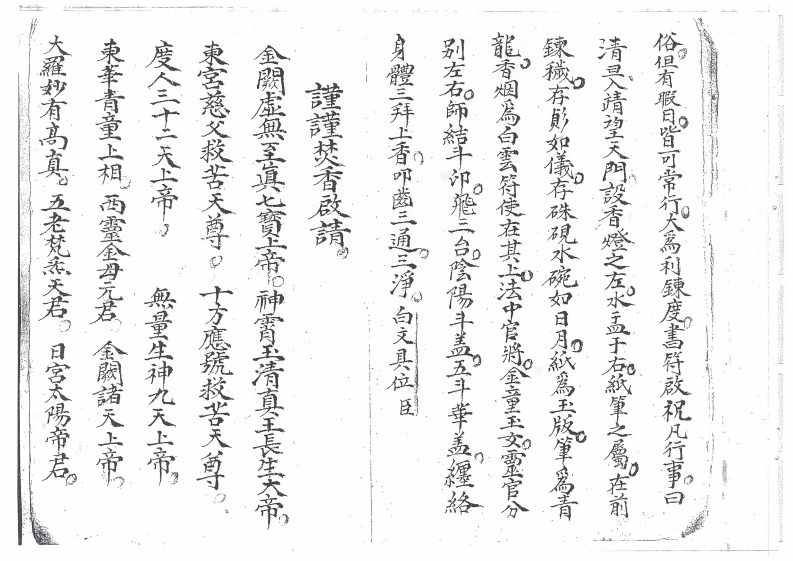 俗但有暇日皆可常行大為利鍊度書符啟祝凡行事曰
清旦入靖望天門設香燈之左水盂于右紙筆之屬在前
鍊穢存形如儀存硃硯水碗如日月紙為玉版筆為青
龍香烟為白雲符使在其上法中官將金童玉女靈官分
別左右師結斗印飛三台陰陽斗盖五斗華盖纏絡
身體三拜上香叩齒三通三淨白文具位臣
謹謹焚香啟請
金闕虛無至真七寶上帝 神霄玉清真王長生大帝
東宮慈父救苦天尊 十方應號救苦天尊
度人三十二天上帝 無量生神九天上帝
東華青童上相 西靈金母元君 金闕諸天上帝
大羅妙有高真 五老梵炁天君 日宮太陽帝君